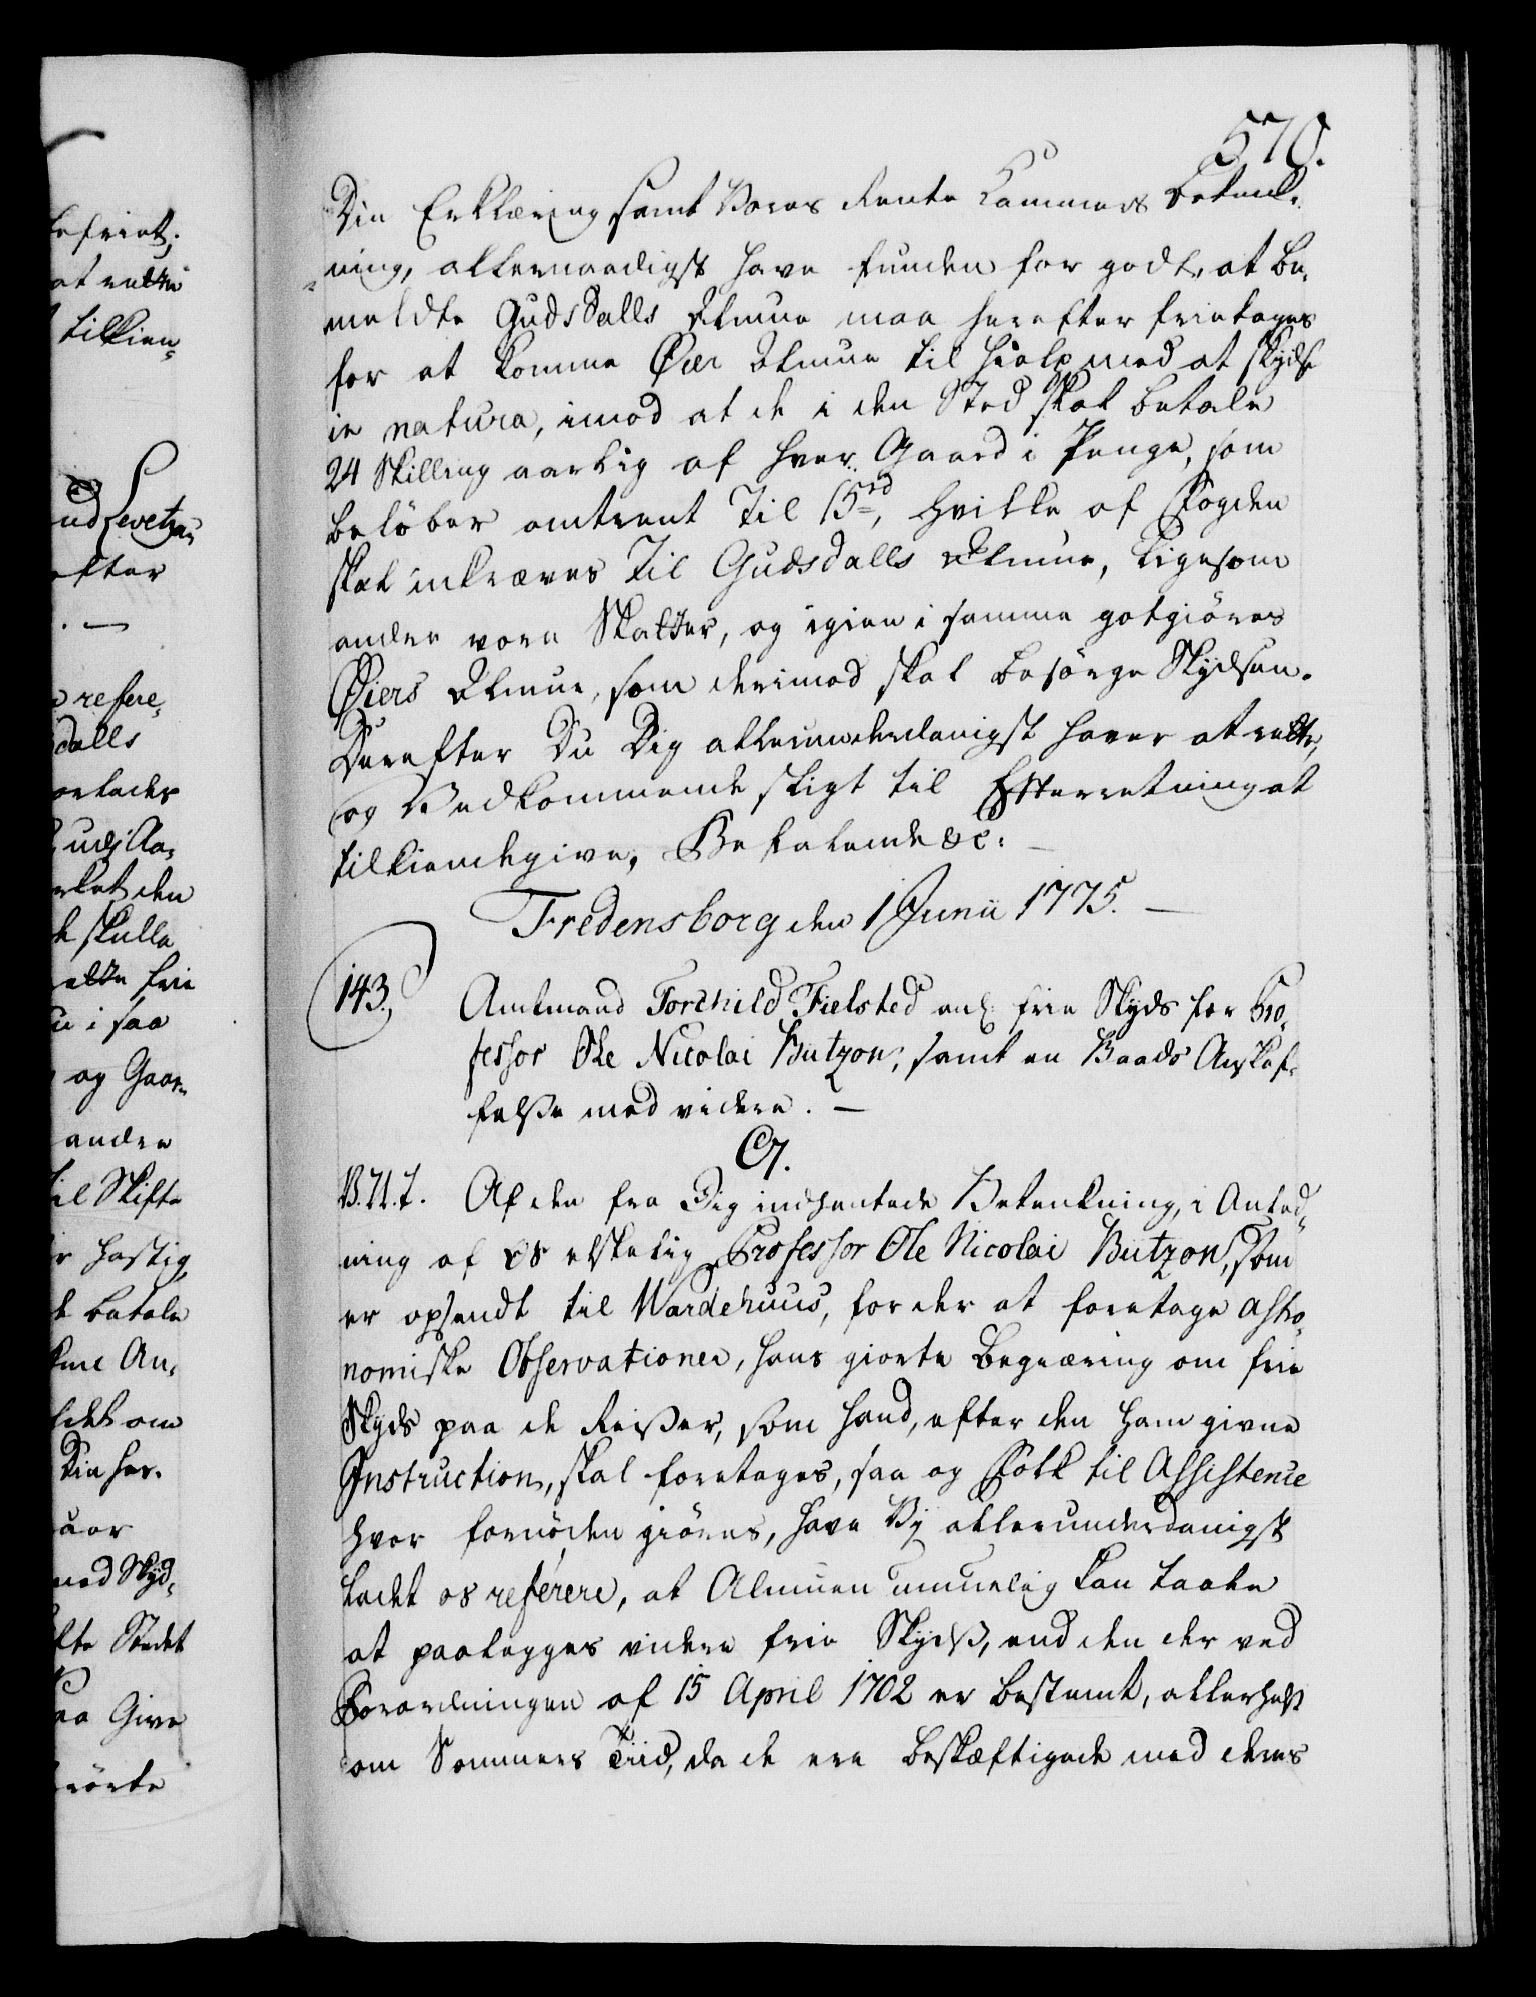 570.
Din Erklæring samt Vores Rente Kammers Betænk-
ning, allernaadigst have funden for godt, at be-
meldte Gudsdalls Almue maa herefter fritages
for at komme Øier Almue til Hielp med at skydse
in natura, imod at de i den Sted skal betale
24 Skilling aarlig af hver Gaard i Penge, som
beløber omtrent til 15 rd, hvilke af Fogden
skal inkræves til Gudsdalls Almue, ligesom
andre vore Skatter, og igien i samme gotgiøres
Øiers Almue, som derimod skal besørge Skydsen.
Derefter Du Dig allerunderdanigst haver at rette,
og Vedkommende sligt til Efterretning at
tilkiendegive, Befalende &c:
Fredensborg den 1 Junii 1775.
143. Amtmand Torchild Fielsted anl. frie Skyds for Pro-
fessor Ole Nicolai Bützon, samt en Baads Anskaf-
felse med videre. —
C7.
V. U. T. Af den fra Dig indhentede Betænkning, i Anled-
ning af os elskelig Professor Ole Nicolai Bützon, som
er opsendt til Wardehuus, for der at foretage astro-
nomiske Observationer, hans giorte Begiæring om frie
Skyds paa de Reiser, som hand, efter den ham givne
Instruction, skal foretages, saa og Folk til Assistence
hvor fornøden giøres, have Vi allerunderdanigst
ladet os referere, at Almuen umuelig kan taale
at paalegges videre frie Skyds, end den der ved
Forordningen af 15 April 1702 er bestemt, allerhelst
om Sommers Tiid, da de ere beskæftigede med deres
befriet,
at rette
tilkien-
Levetza-
efter
. —
refere-
dalls
forlades
den
skulle
frie
i saa
og Gaar-
andre
til Skifte
hastig
betale
An-
om
Din her-
med Skyd-
Stedet
Give